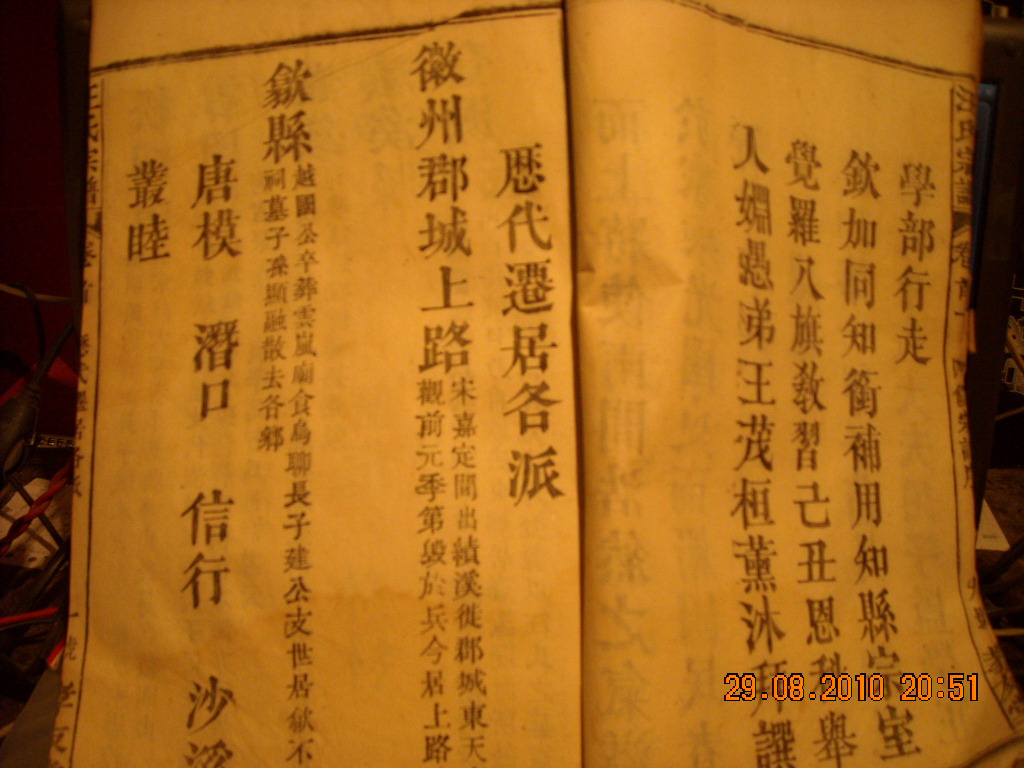 學部行走
欽加同知銜補用知縣宗室
覺羅八旗敎習己丑恩科舉
人婣愚弟王茂桓薰沐拜譔
歷代遷居各派
徽州郡城上路
宋嘉定間出績溪徙郡城東天
觀前元季第毀於兵今居上路
歙縣
越國公卒葬雲嵐廟食烏聊長子建公支世居歙不
祠墓子孫顯融散去各鄉
唐模 潛口 信行 沙溪
叢睦
汪氏宗譜
卷首
29.08.2010 20:51